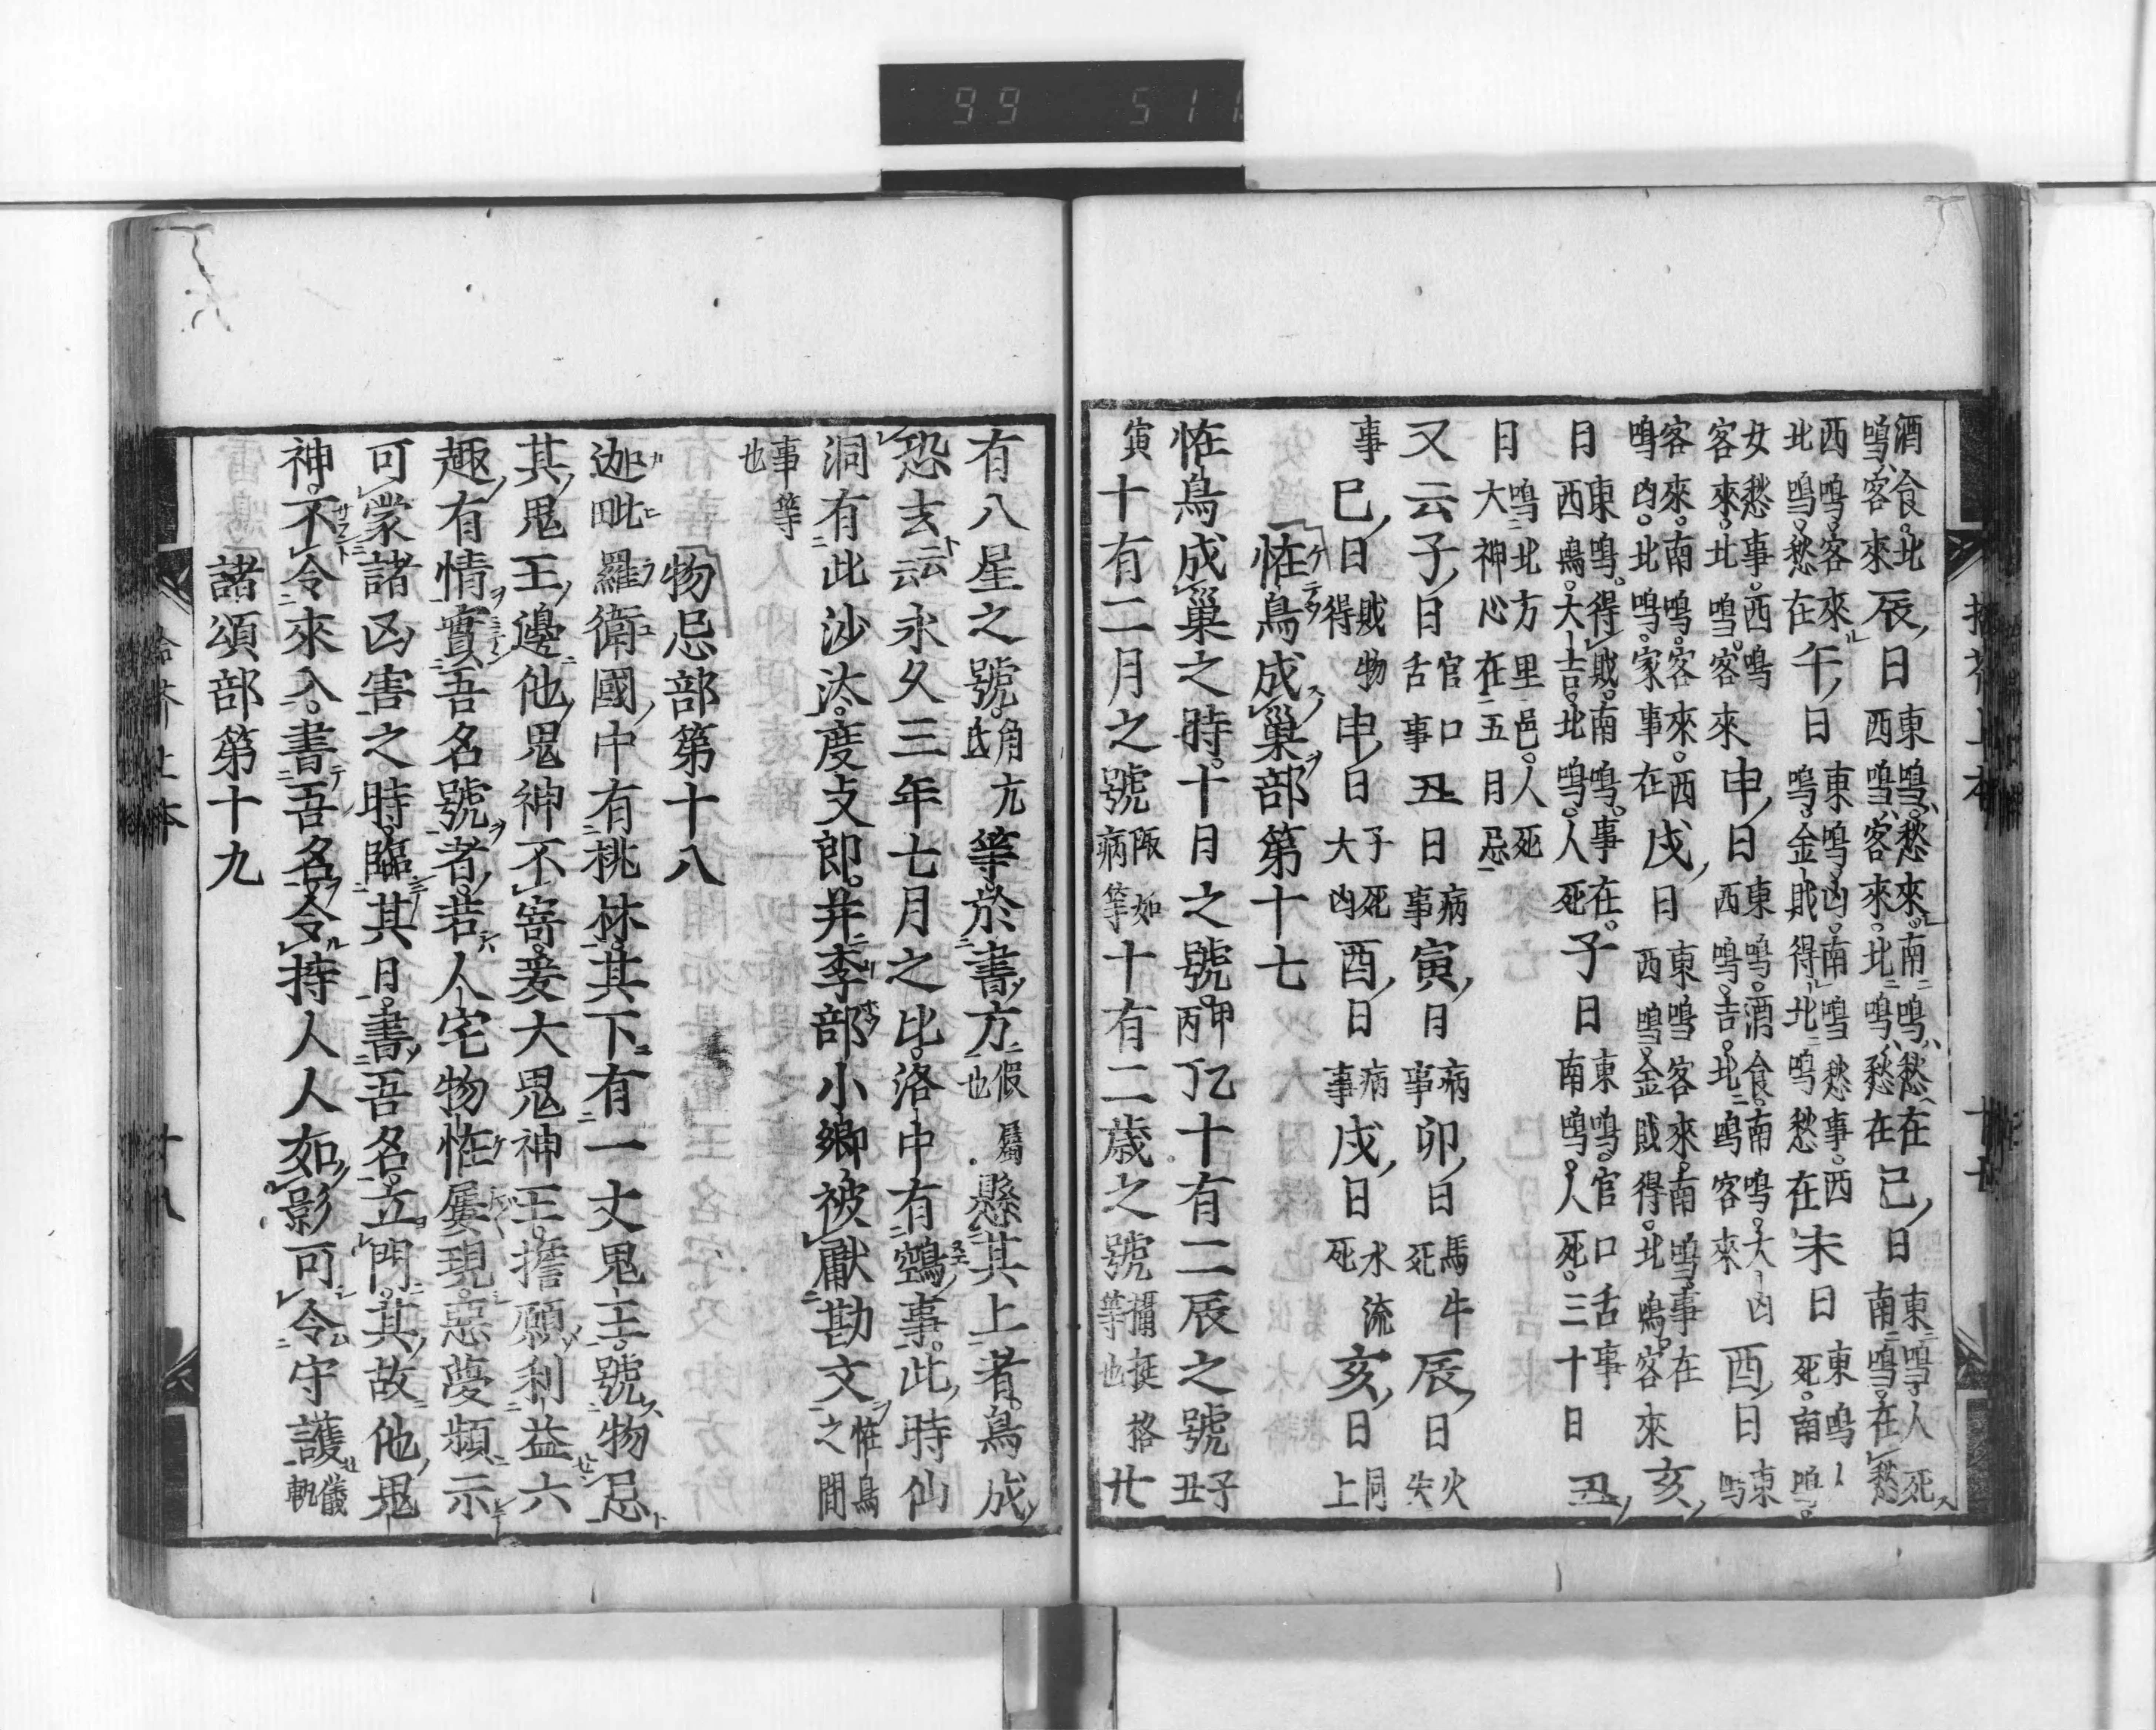 酒食。北鳴、客來辰日東鳴、愁來。南鳴、愁在西鳴、客來。北鳴、愁在巳日東鳴、人死南鳴。在愁
西鳴。客來北鳴。愁在午日東鳴。凶。南鳴愁事。西鳴。金財得北鳴愁在未日東鳴死。南鳴。
女愁事。西鳴客來。北鳴。客來申日東鳴。酒食。南鳴。大凶西鳴。吉。北鳴客來酉日東鳴
客來。南鳴。客來。西鳴凶。北鳴。家事在戌日東鳴客來。南鳴。事在西鳴。金財得。北鳴。客來亥
日東鳴。得財。南鳴。事在。西鳴。大吉。北鳴。人死子日東鳴。官口舌事南鳴。人死。三十日丑
日鳴北方里邑。人死大神心在五月忌
又云子日官口舌事丑日病事寅日病事卯日馬牛死辰日火失
事巳日財物得申日子死大凶酉日病事戌日水流死亥日同上
恠鳥成巢部第十七
恠鳥成巢之時。十日之號。甲乙丙丁十有二辰之號子丑
寅十有二月之號陬如病等十有二歳之號攝提格等也廿
有八星之號。角亢氐等。於書方假也屬懸其上者。鳥成
恐去云云永久三年七月之比。洛中有鵼事。此時仙
洞有此沙汰。度支郎。并李部小卿被獻勘文恠鳥之間
事等也
物忌部第十八
迦毗羅衛國中有桃林。其下有一丈鬼王。號物忌
其鬼王邊他鬼神不寄。爰大鬼神王。擔願利益六
趣有情實吾名號者。若人宅物恠屢現。惡夢頻示
可蒙諸凶害之時。臨其日。書吾名。立門。其故他鬼
神。不令來入。書吾名令持人人如影可令守護儀軌
諸頌部第十九